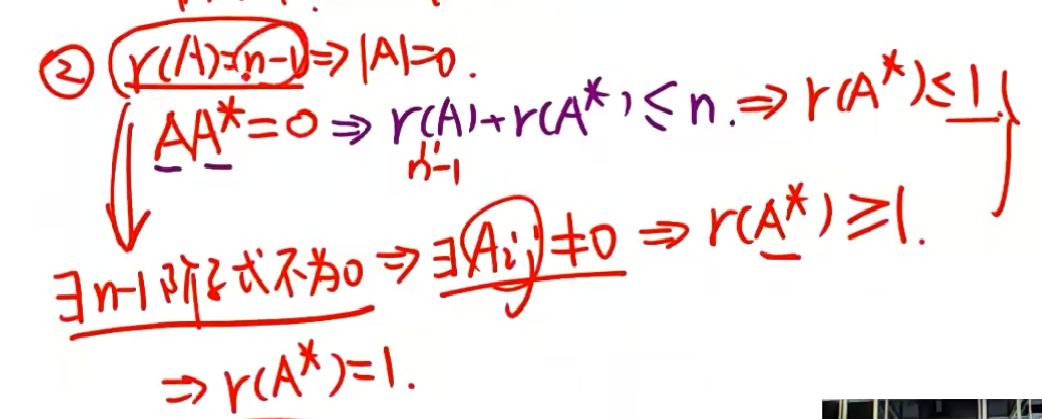 ② r(A)=n-1 ⇒ |A|=0.
AA*=0 ⇒ r(A)+r(A*)≤n. ⇒ r(A*)≤1.
n-1
∃n-1阶子式不为0 ⇒ ∃Aij≠0 ⇒ r(A*)≥1.
⇒ r(A*)=1.